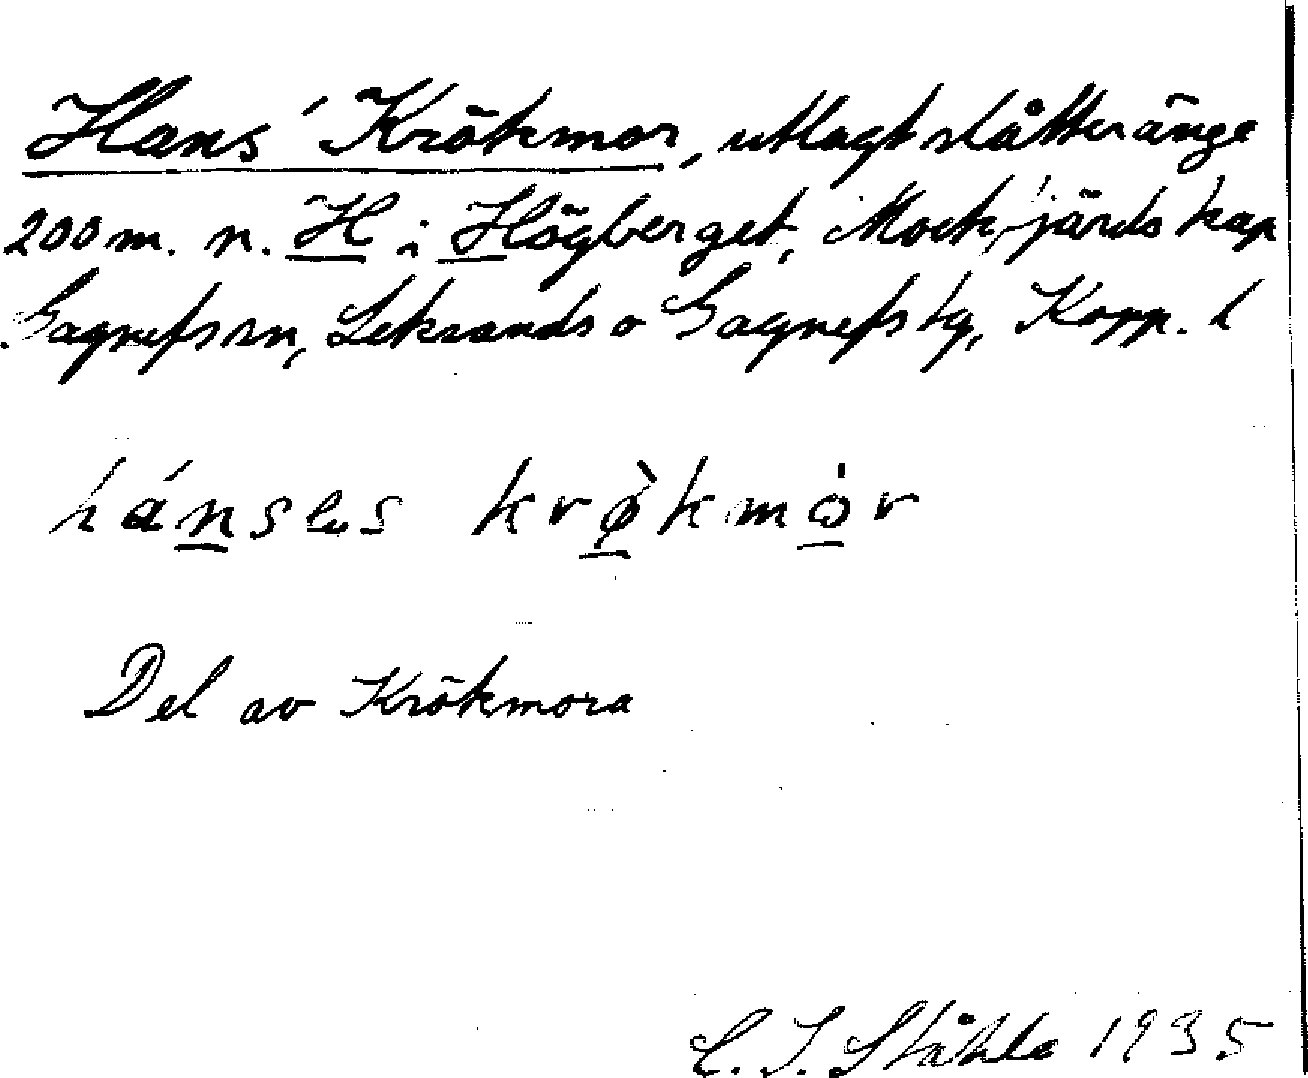 Hans' Krökmor, utlagt slåtteränge
200 m. n. H i Högberget, Mockfjärds kap
Gagnefs sn, Leksands o Gagnefs tg, Kopp. l
hánsəs krø̀kmȯr
Del av Krökmora
C. I. Ståhle 1935